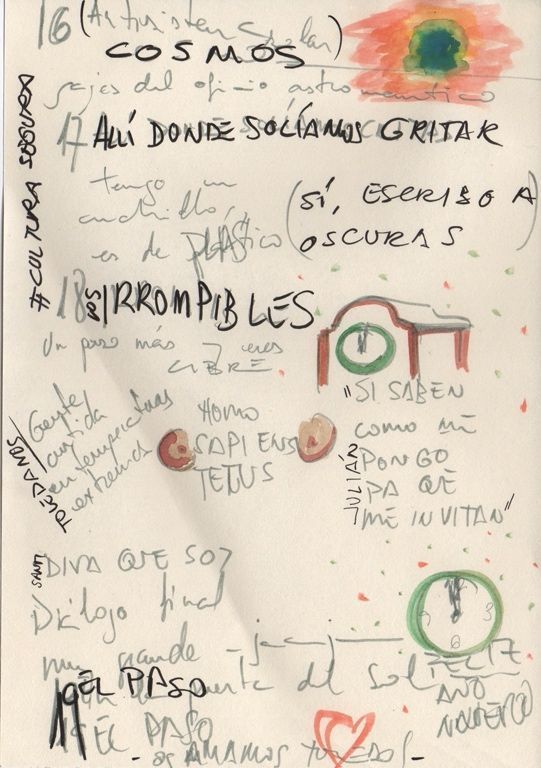 16 (Artrsisten Stelar)
COSMOS
gajes del oficio astromántico
#CULTURA
17 ALLÍ DONDE SOLÍAMOS GRITAR
tengo un
cuchillo,
es de plástico
(SÍ, ESCRIBO A
OSCURAS
18 IRROMPIBLES
Un paso más y eres
LIBRE
"SI SABEN
como me
PONGO
PA QUÉ
ME INVITAN"
JULIÁN
Gente
curtida
en temperaturas
extremas
TOLEDANOS
HOMO
SAPIENS
TETUS
SANTI
DIVA QUE SOY
Diálogo final
muy grande - jajaj
19 EL PASO
puerta del Sol
EL PASO
FELIZ
AÑO
NUEVO
12
3
6
9
- OS AMAMOS TOLEDOS -